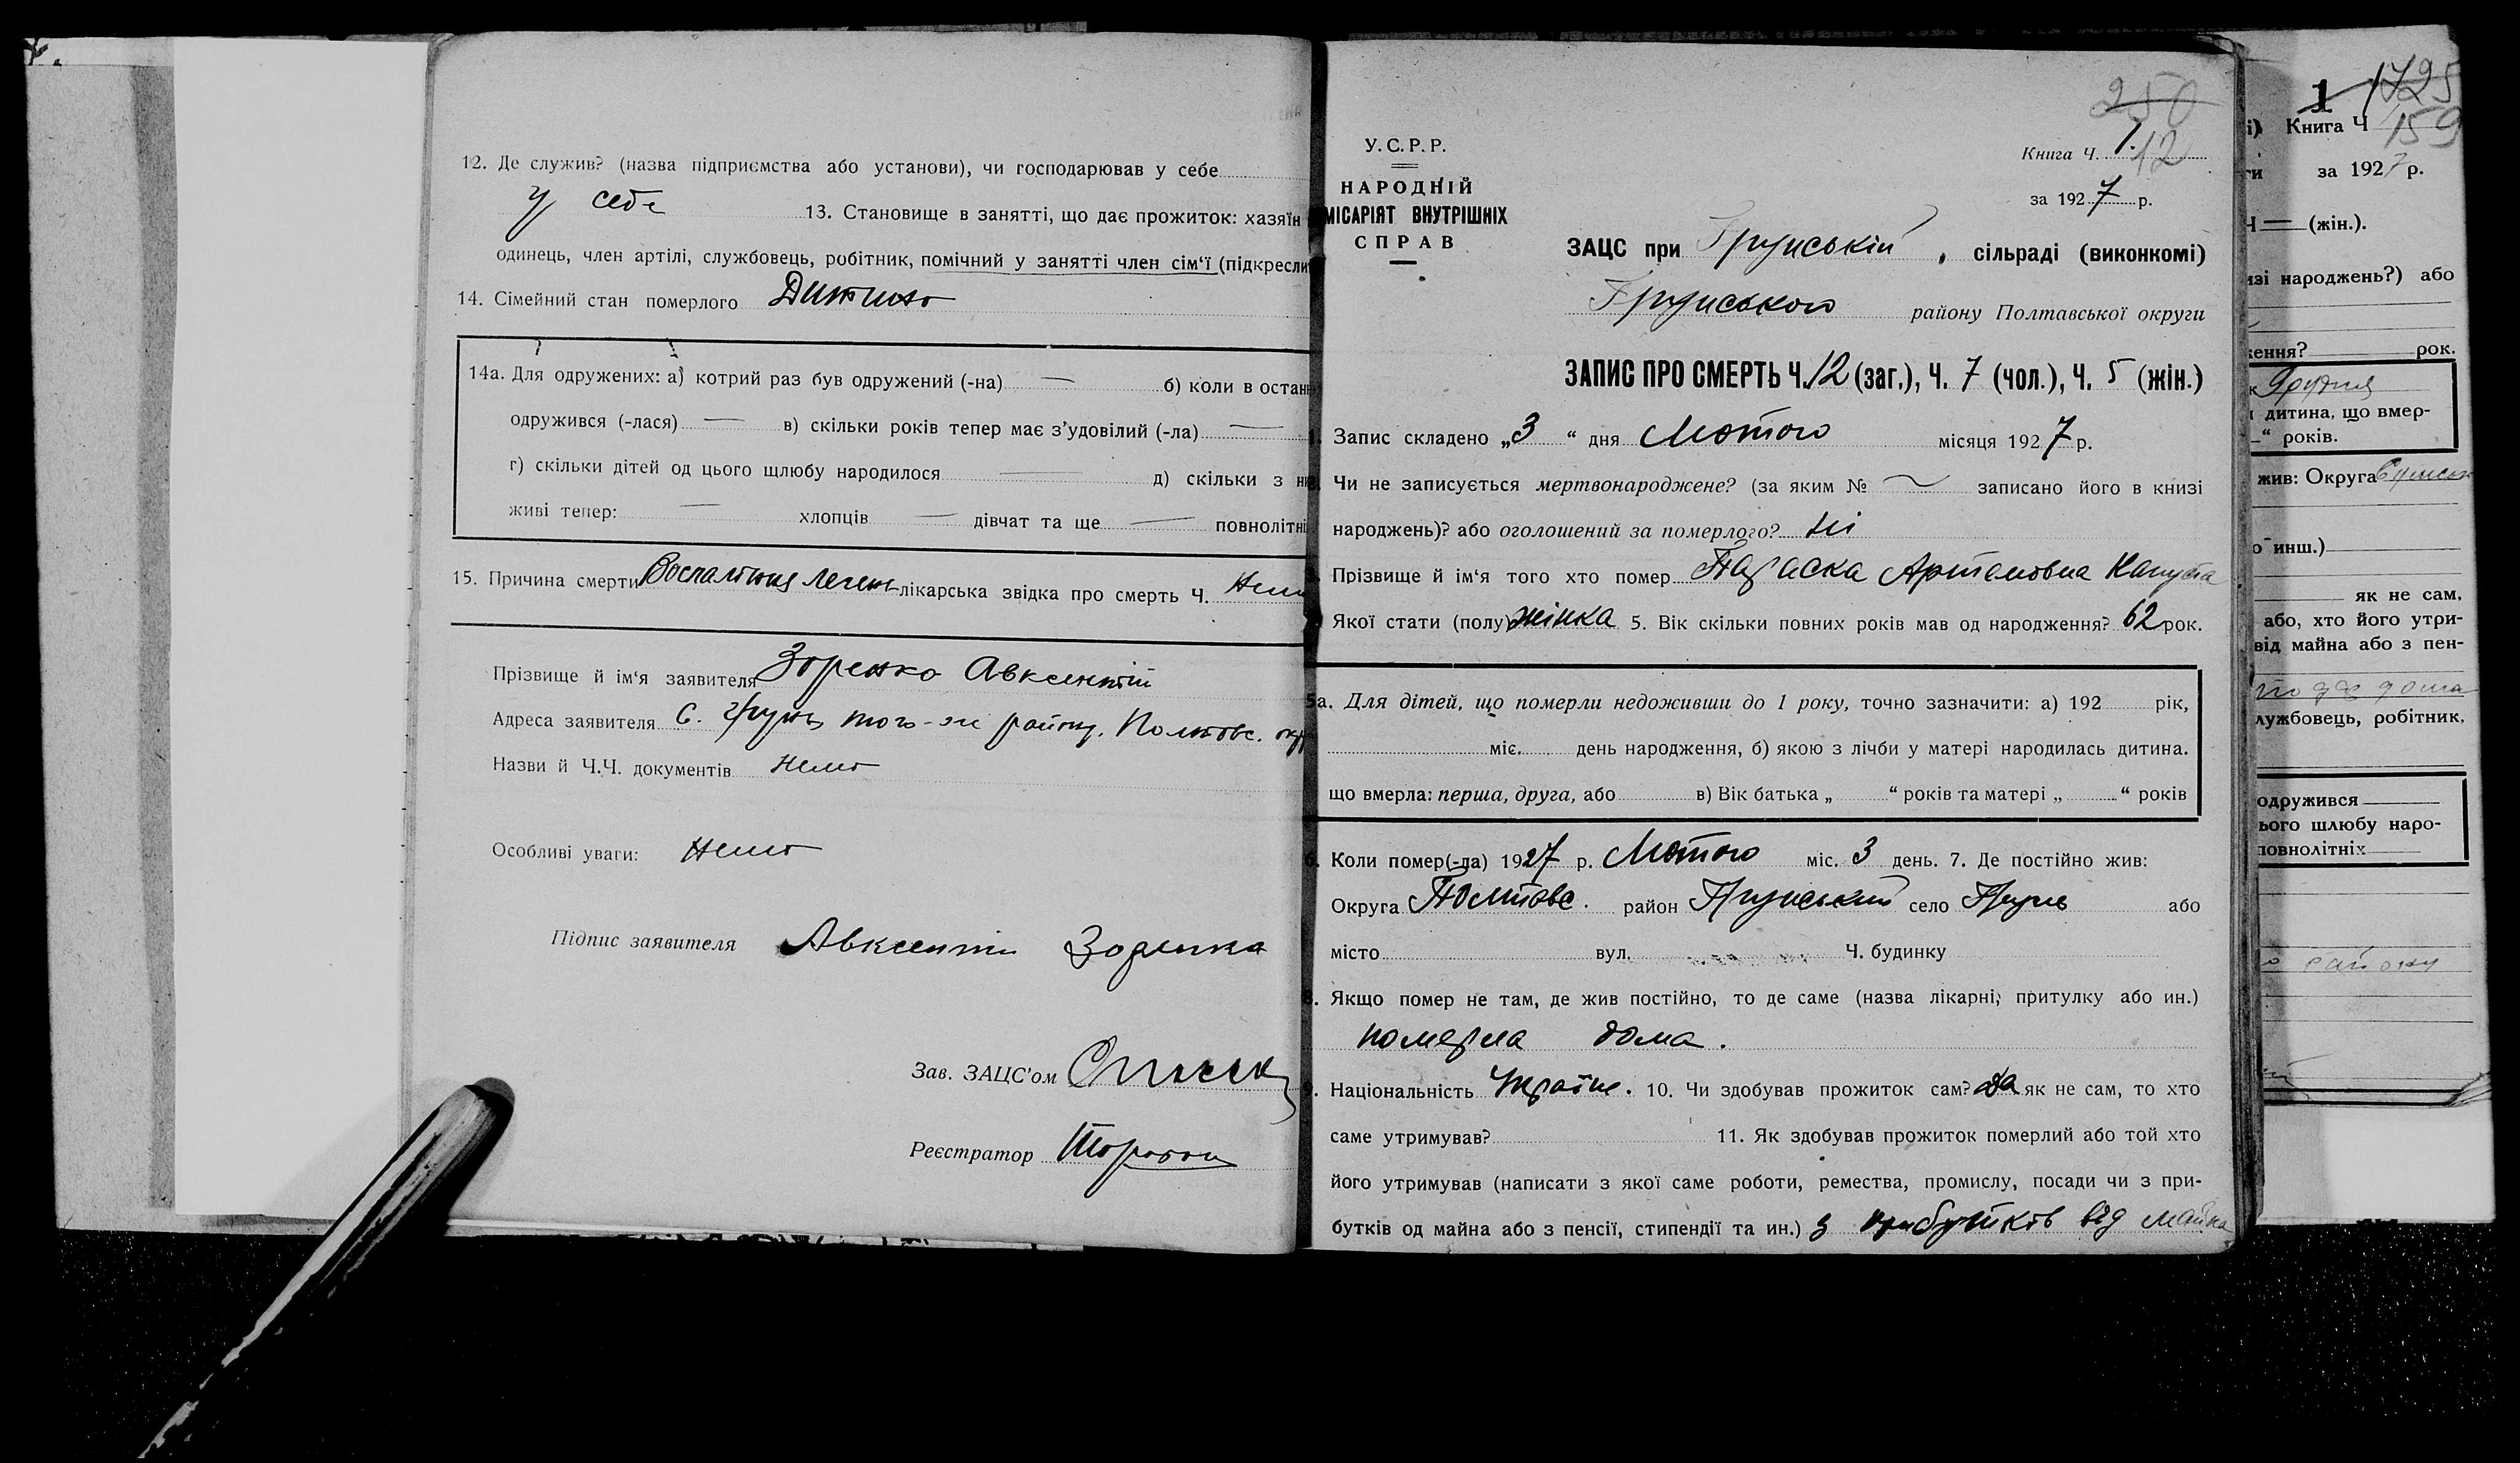 12. Де служив? (назва підприємства або установи), чи господарював у себе
у себе 13. Становище в занятті, що дає прожиток: хазяїн
одинець, член артілі, службовець, робітник, помічний у занятті член сім‘ї (підкресли
14. Сімейний стан померлого Дитина
14а. Для одружених: а) котрий раз був одружений (-на) — б) коли в остан
одружився (-лася) — в) скільки років тепер має з’удовілий (-ла) —
г) скільки дітей од цього шлюбу народилося — д) скільки з
живі тепер: — хлопців — дівчат та ще — повнолітні
15. Причина смерти Воспаління легень лікарська звідка про смерть Ч. Нема
Прізвище й ім‘я заявителя Зоренко Авксентій
Адреса заявителя С. Грунь, того-ж району. Полтавс. окр
Назви й Ч.Ч. документів Нема
Особливі уваги: Нема
Підпис заявителя Авксентій Зоренко
Зав. ЗАЦС’ом
Реєстратор
250
У.С.Р.Р.
Книга Ч. 1. 12
НАРОДНІЙ
МІСАРІЯТ ВНУТРІШНІХ
СПРАВ
за 1927 р.
ЗАЦС при Грунській, сільраді (виконкомі)
Грунського району Полтавської округи
ЗАПИС ПРО СМЕРТЬ Ч. 12 (заг.), Ч. 7 (чол.), Ч. 5 (жін.)
Запис складено „3“ дня Лютого місяця 1927 р.
Чи не записується мертвонароджене? (за яким № — записано його в книзі
народжень)? або оголошений за померлого? Ні
Прізвище й ім‘я того хто помер Параска Артемовна Капуста
Якої стати (полу) жінка 5. Вік скільки повних років мав од народження? 62 рок.
5а. Для дітей, що померли недоживши до 1 року, точно зазначити: а) 192 рік,
міс. день народження, б) якою з лічби у матері народилась дитина.
що вмерла: перша, друга, або в) Вік батька „ “ років та матері „ “ років
6. Коли помер(-ла) 1927 р. Лютого міс. 3 день. 7. Де постійно жив:
Округа Полтавс. район Грунський село Грунь або
місто вул. Ч. будинку
8. Якщо помер не там, де жив постійно, то де саме (назва лікарні, притулку або ин.)
померла дома.
9. Національність Україн. 10. Чи здобував прожиток сам? да як не сам, то хто
саме утримував? 11. Як здобував прожиток померлий або той хто
його утримував (написати з якої саме роботи, ремества, промислу, посади чи з при-
бутків од майна або з пенсії, стипендії та ин.) з прибутків від майна
1 1725
Книга Ч 159
за 1927 р.
Ч — (жін.).
зі народжень?) або
ження? рок.
Грудня
дитина, що вмер-
“ років.
жив: Округа Сумськ
о инш.)
як не сам,
або, хто його утри-
від майна або з пен-
лужбовець, робітник,
одружився
ього шлюбу наро-
повнолітніх
району